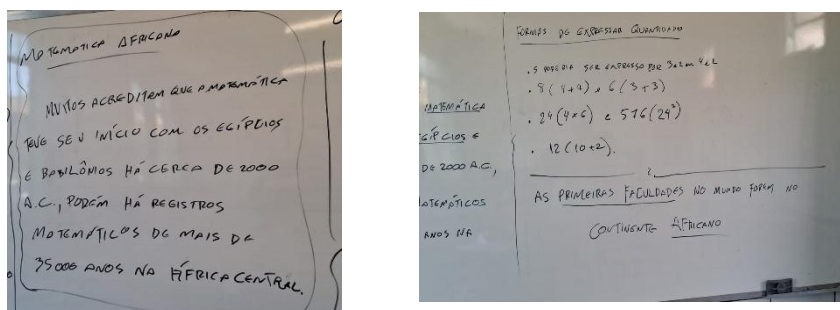 MATEMÁTICA AFRICANA
MUITOS ACREDITAM QUE A MATEMÁTICA
TEVE SEU INÍCIO COM OS EGÍPCIOS
E BABILÔMOS HÁ CERCA DE 2000
A.C., PORÉM HÁ REGISTROS
MATEMÁTICOS DE MAIS DE
35000 ANOS NA ÁFRICA CENTRAL.
MATEMÁTICA
EGÍPCIOS E
DE 2000 A.C.,
MATEMÁTICOS
ANOS NA
FORMAS DE EXPRESSAR QUANTIDADE
. 5 PODERIA SER EXPRESSO POR 3+2 ou 4+1
. 8 (4+4) e 6 (3+3)
. 24 (4x6) e 576 (24²)
. 12 (10+2).
AS PRIMEIRAS FACULDADES NO MUNDO FORAM NO
CONTINENTE AFRICANO